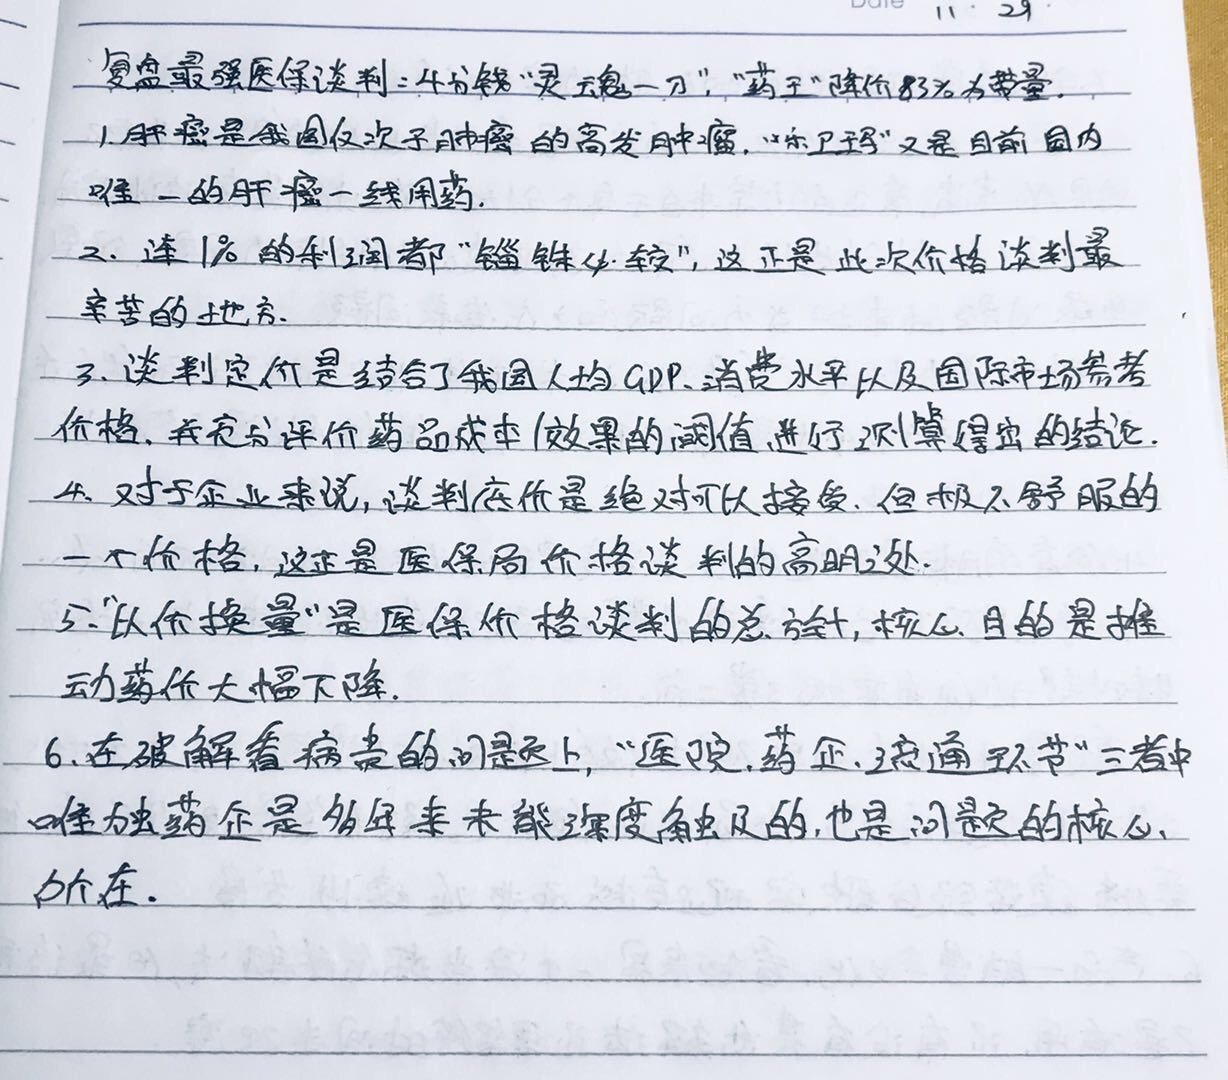 Date 11.29.
复盘最强医保谈判:4分钱“灵魂一刀”,“药王”降价83%为带量.
1.肝癌是我国仅次于肺癌的高发肿瘤,“乐卫玛”又是目前国内
唯一的肝癌一线用药.
2. 连1%的利润都“锱铢必较”,这正是此次价格谈判最
辛苦的地方.
3.谈判定价是结合了我国人均GDP、消费水平以及国际市场参考
价格,并充分评价药品成本/效果的阈值,进行测算得出的结论.
4.对于企业来说,谈判底价是绝对可以接受,但极不舒服的
一个价格,这正是医保局价格谈判的高明之处.
5.“以价换量”是医保价格谈判的总方针,核心目的是推
动药价大幅下降.
6.在破解看病贵的问题上,“医院、药企、流通环节”三者中
唯独药企是多年来未能深度触及的,也是问题的核心
所在.